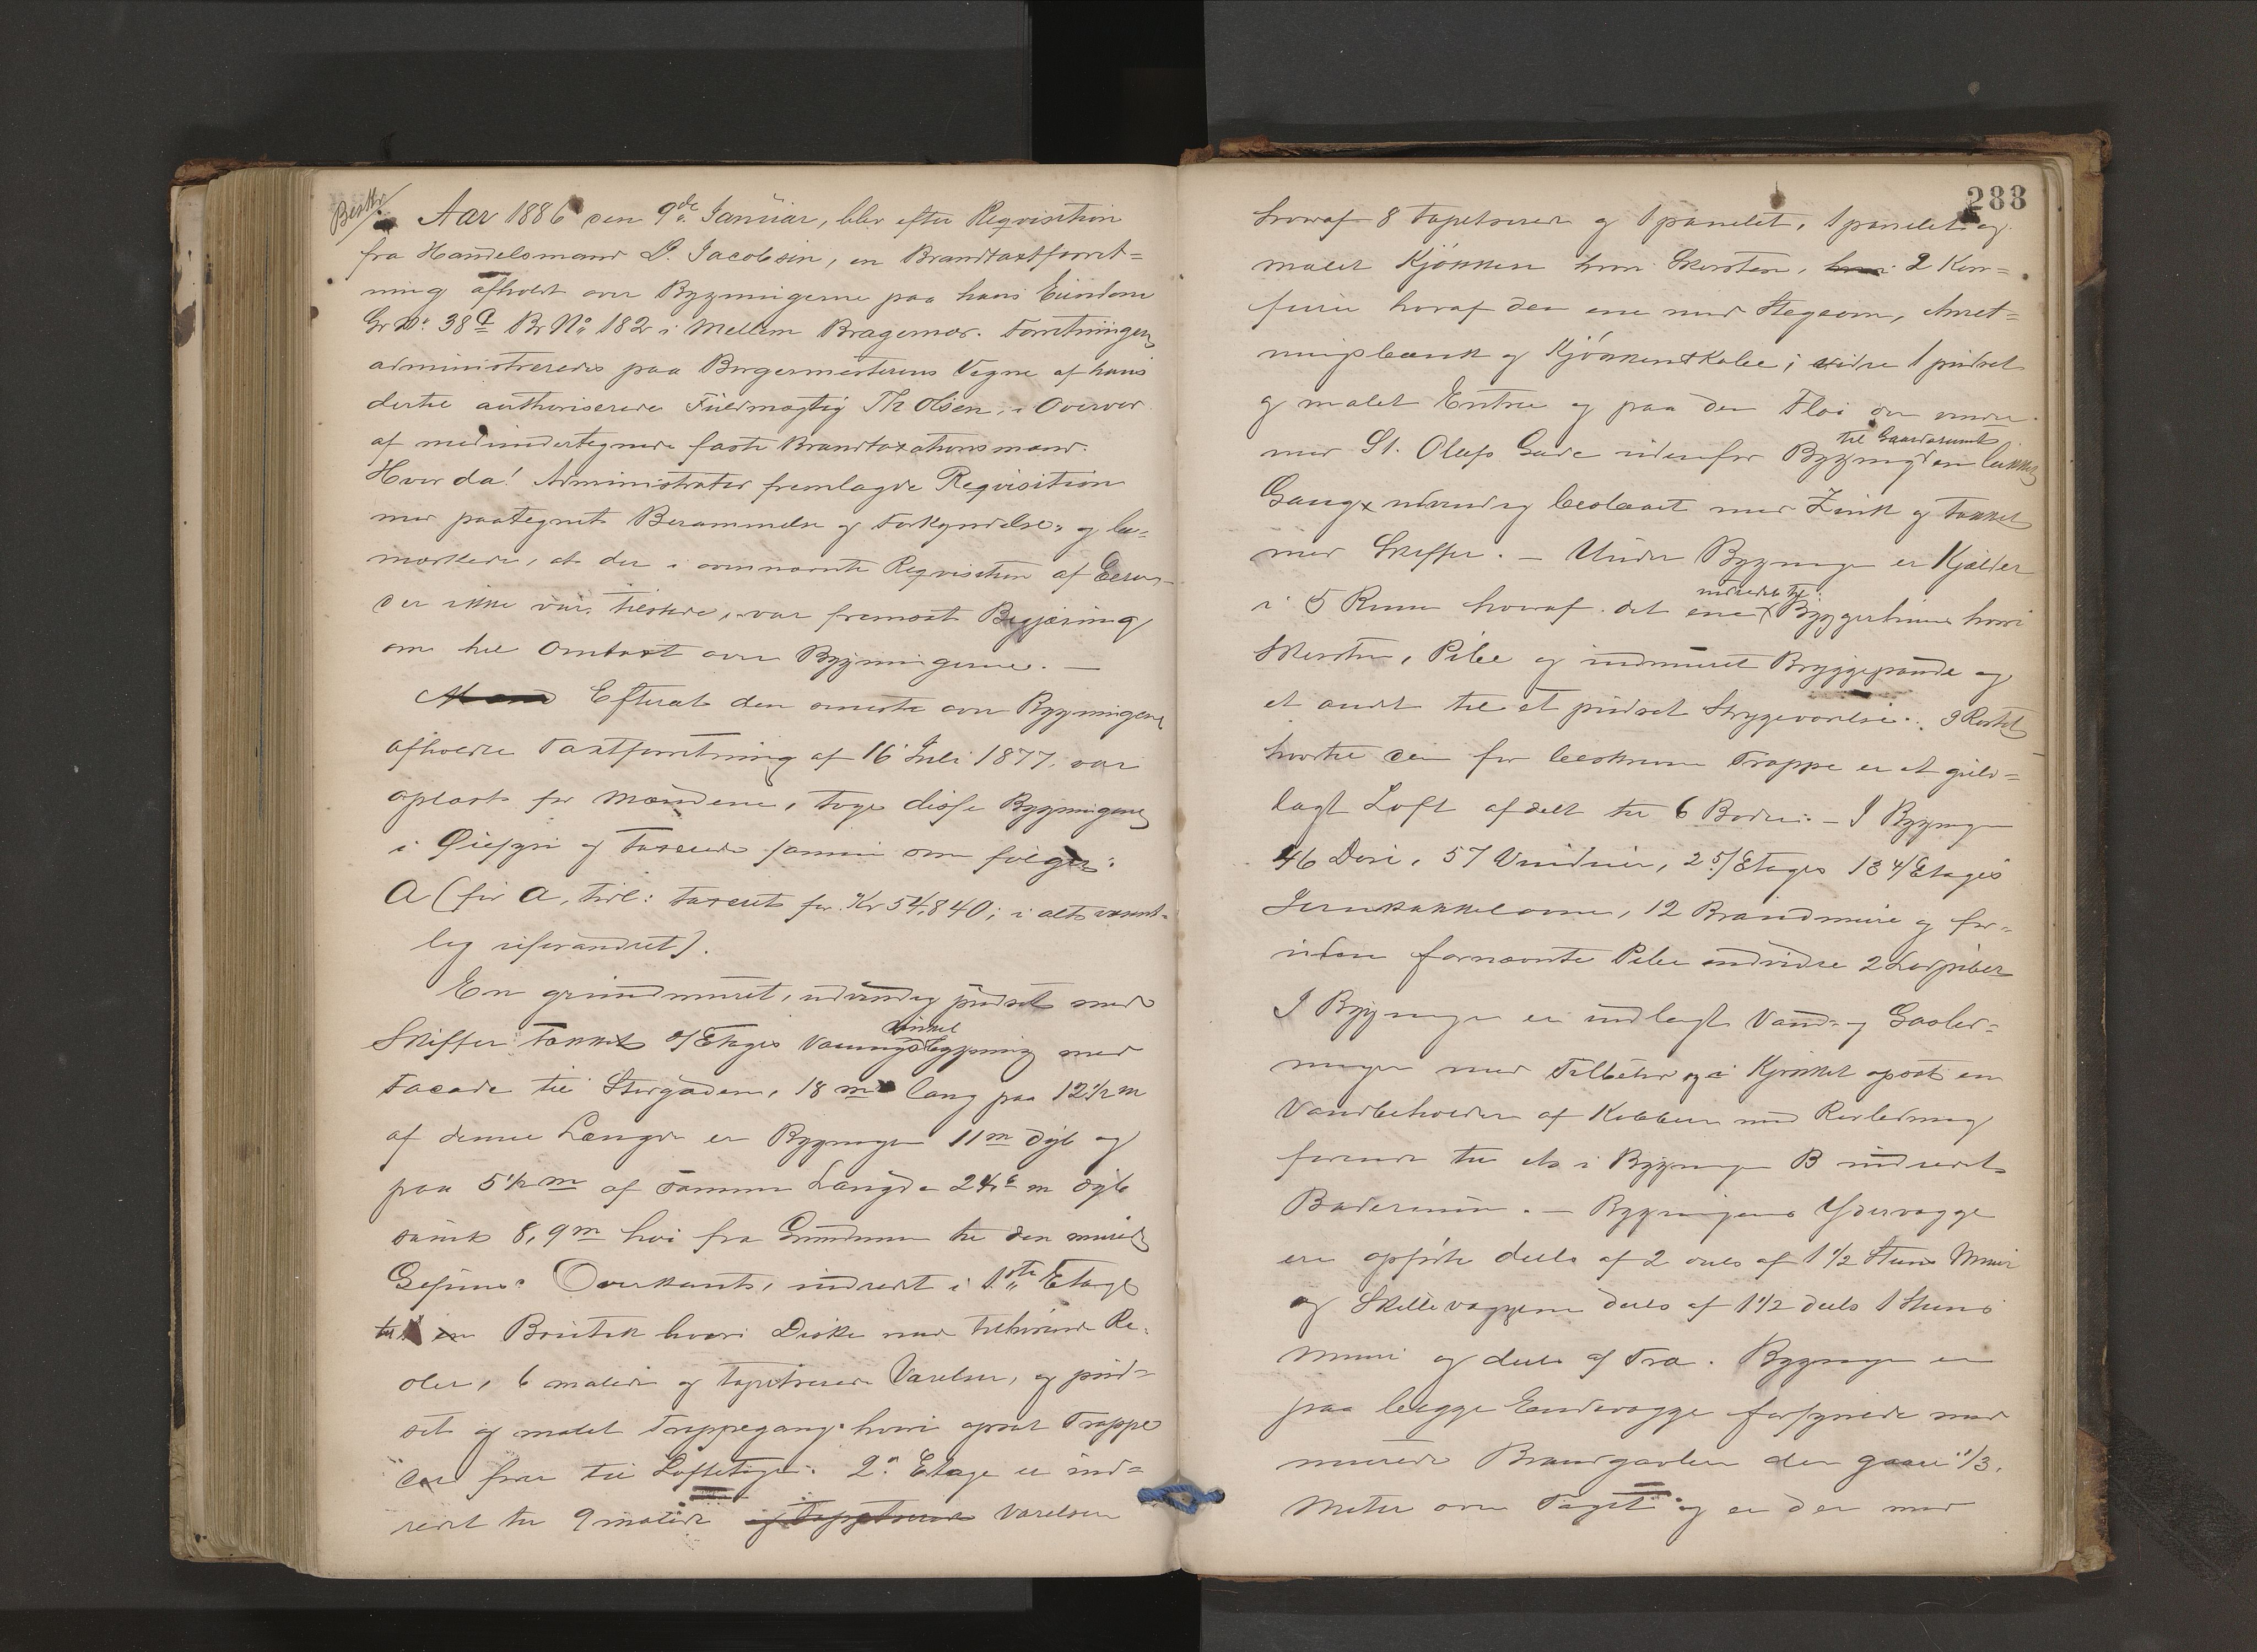 Beskr
Aar 1886 den 9de Januar, blev efter Reqvisition
fra Handelsmand D. Jacobsen, en Brandtaxtforret=
ning afholdt over Bygningerne paa hans Eiendom
Gr No. 38a Br No. 182 i Mellem Bragernæs. Forretningen
administreredes paa Borgermesterens Vegne af hans
dertil authoriserede Fuldmægtig Th Olsen, i Overvær
af medundertegnede faste Brandtaxationsmænd.
Hvor da! Administrator fremlagde Reqvisition
med paategnet Berammelse og Forkyndelse, og be=
mærkede, at der i ovennævnte Reqvisition af Eieren
der ikke var tilstede, var fremsat Begjæring
om hel Omtaxt over Bygningerne. —
Efterat den seneste over Bygningerne
afholdte Taxtforretning af 16 Juli 1877, var
oplæst for Mændene, toges disse Bygningene
i Øiesyn og taxerede samme som følger:
A (før A, tidl: taxeret for Kr 54,840; i alt væsent=
lig uforandret).
En grundmuret, udvendig pudset med
Skiffer tækket 2/Etages Vaanings
vinkel
bygning med
Facade til Storgaden, 18 m lang paa 12 1/2 m
af denne Længde er Bygningen 11 m dyb og
paa 5 1/2 m af samme Længde m dyb
samt 8,9 m høi fra Grunden til den murede
Gesims's Overkant, indredet i 1ste Etage
til en Boutik hvori Diske med tilhørende Re=
oler, 6 malede og tapetserede Værelser, og pud=
set og malet Trappegang hvori opsat Trappe
der fører til Loftetagen. 2. Etage er ind=
redet til 9 malede og tapetserede Værelser
288
hvoraf 8 tapetserede og 1 panelet, 1 panelet og
malet Kjökken hvori Skorsten, 2 Kom=
furer hvoraf den ene med Stegeovn, Anret=
ningsbænk og Kjökkenskabe; videre 1 pudset
og malet Entree og paa den Fløi der vender
til Gaardsrummet
mod St. Olafs Gade udenfor Bygningen en lukket
Gang x udvendig beslaaet med Zink og tækket
med Skiffer. — Under Bygningen er Kjælder
indredet til
i 5 Rum hvoraf det ene x Bryggerhuus hvori
Skorsten, Pibe og indmuret Bryggepande og
et andet til et pudset Strygeværelse. I Røstet
hvortil den før beskrevne Trappe er et gulv=
lagt Loft afdelt til 6 Boder. — I Bygningen
46 Døre, 57 Vinduer, 2 5/Etages 13 4/Etages
Jernkakkelovne, 12 Brandmure og for=
uden fornævnte Pibe endvidere 2 Luftpiber
I Bygningen er indlagt Vand- og Gasled=
ninger med Tilbehør og i Kjökkenet opsat en
Vandbeholder af Kobber med Rørledning
førende til et i Bygningen B indredet
Baderum. — Bygningens Ydervægge
ere opførte deels af 2 deels af 1 1/2 Steens Muur
og Skillevæggene deels af 1 1/2 deels 1 Steens
Muur og deels af Træ. Bygningen er
paa begge Endevægge forsynede med
murede Brandgavler der gaar 1/3
Meter over Taget og er den mod